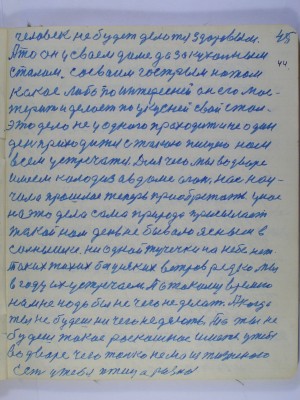 человек не будет делоти здоровым. 45
А то он у своем доме да за кухольным 44
сталом. со своем гострым ножом
какое либо по интересней он его мас-
терит и делоет по уукусней свой стол-
это дело не у одного проходит и не один
ден приходится с такою пищою нам
всем устречатся. Для чего мы во дворе
имеем колодез а в доме огон, нас нау-
чило прошлое теперь приобретать уное
на это дело сама природа присылает
такой нам ден не бывало ясным в
солнышке. ни одной тучечки на небе нет
таких тихих больших ветров редко мы
в году их устречаем. А в такои время
нам не надо было не чего не делоть. А когда
ты не будеш ничего не делоть. То ты не
будеш такое роскошное иметь у себя
во дворе чего только нема из жизненого
Есть у тебя птица разная